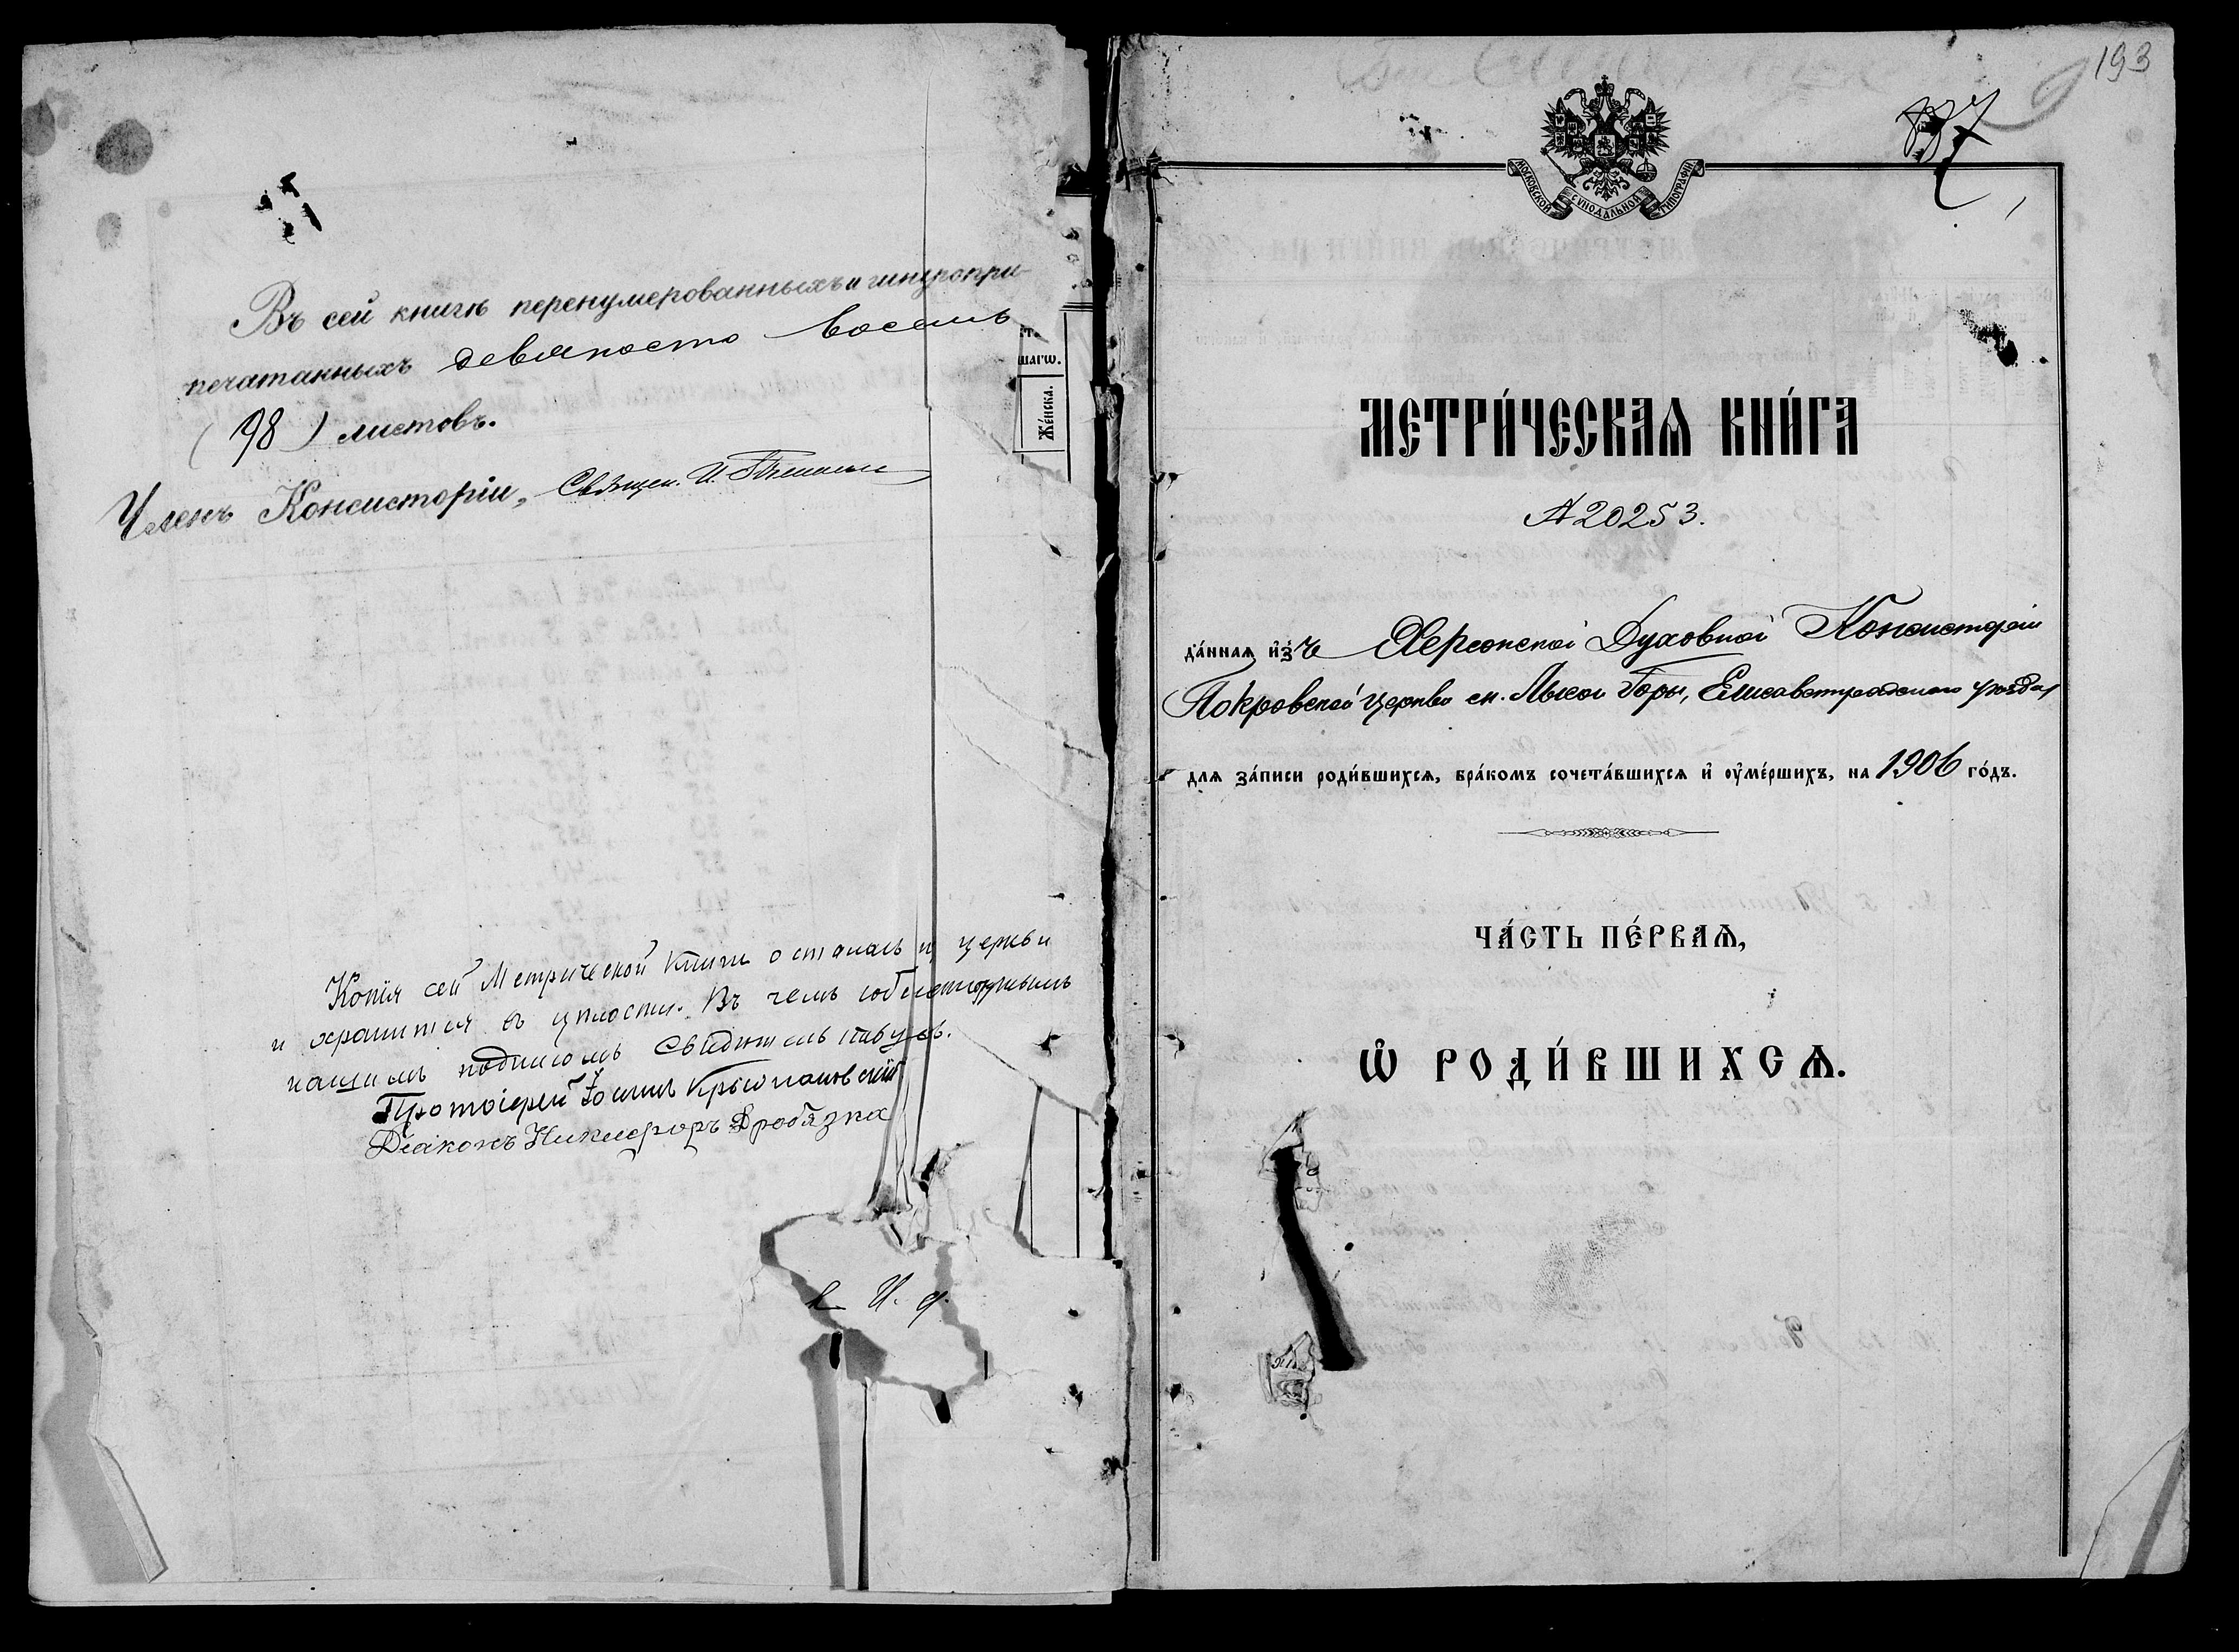 Въ сей книгѣ перенумерованныхъ и шнуропри-
печатанныхъ девяносто восемь
(98) листовъ.
Членъ Консисторіи, Священ. И.
шагω.
Же́нска.
Копія сей Метрической Книги осталась при церкви
и хранится въ цѣлости. Въ чемъ собственноручнымъ
нашимъ подписомъ свидѣтельствуемъ.
Протоіерей Іоаннъ Крыжановскій
Діаконъ Никифоръ Дробязко
193
МОСКОВСКОЙ СѴНОДАЛЬНОЙ ТИПОГРАФІИ
МЕТРИ́ЧЕСКАѦ КНИ́ГА
№ 20253.
да́ннаѧ и҆зъ Херсонской Духовной Консисторіи
Покровской церкви сп. Лысой Горы, Елисаветградскаго уѣзда,
длѧ за́писи роди́вшихсѧ, бра́комъ сочета́вшихсѧ и҆ ᲂу҆ме́ршихъ, на 1906 го́дъ.
ЧА́СТЬ ПЕ́РВАѦ,
Ѡ҆ РОДИ́ВШИХСѦ.